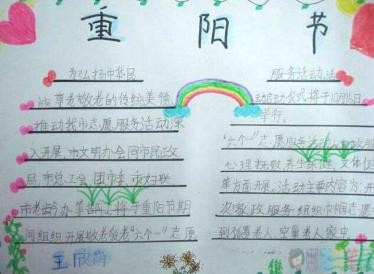 重阳节
为弘扬中华民
族尊老敬老的传统美德
推动我市志愿服务活动深
入开展,市文明办会同市民政
局,市总工会,团市委,市妇联
市老龄办等部门,将于重阳节期
间组织开展敬老爱老“六个一”志愿
服务活动,活
动启动仪式将于10月16日
举行。
“六个一”志愿服务活动
心理抚慰,养生保健,文体
等方面开展,活动主要内容为:开
次家政服务,组织巾帼志愿
到孤寡老人,空巢老人家中